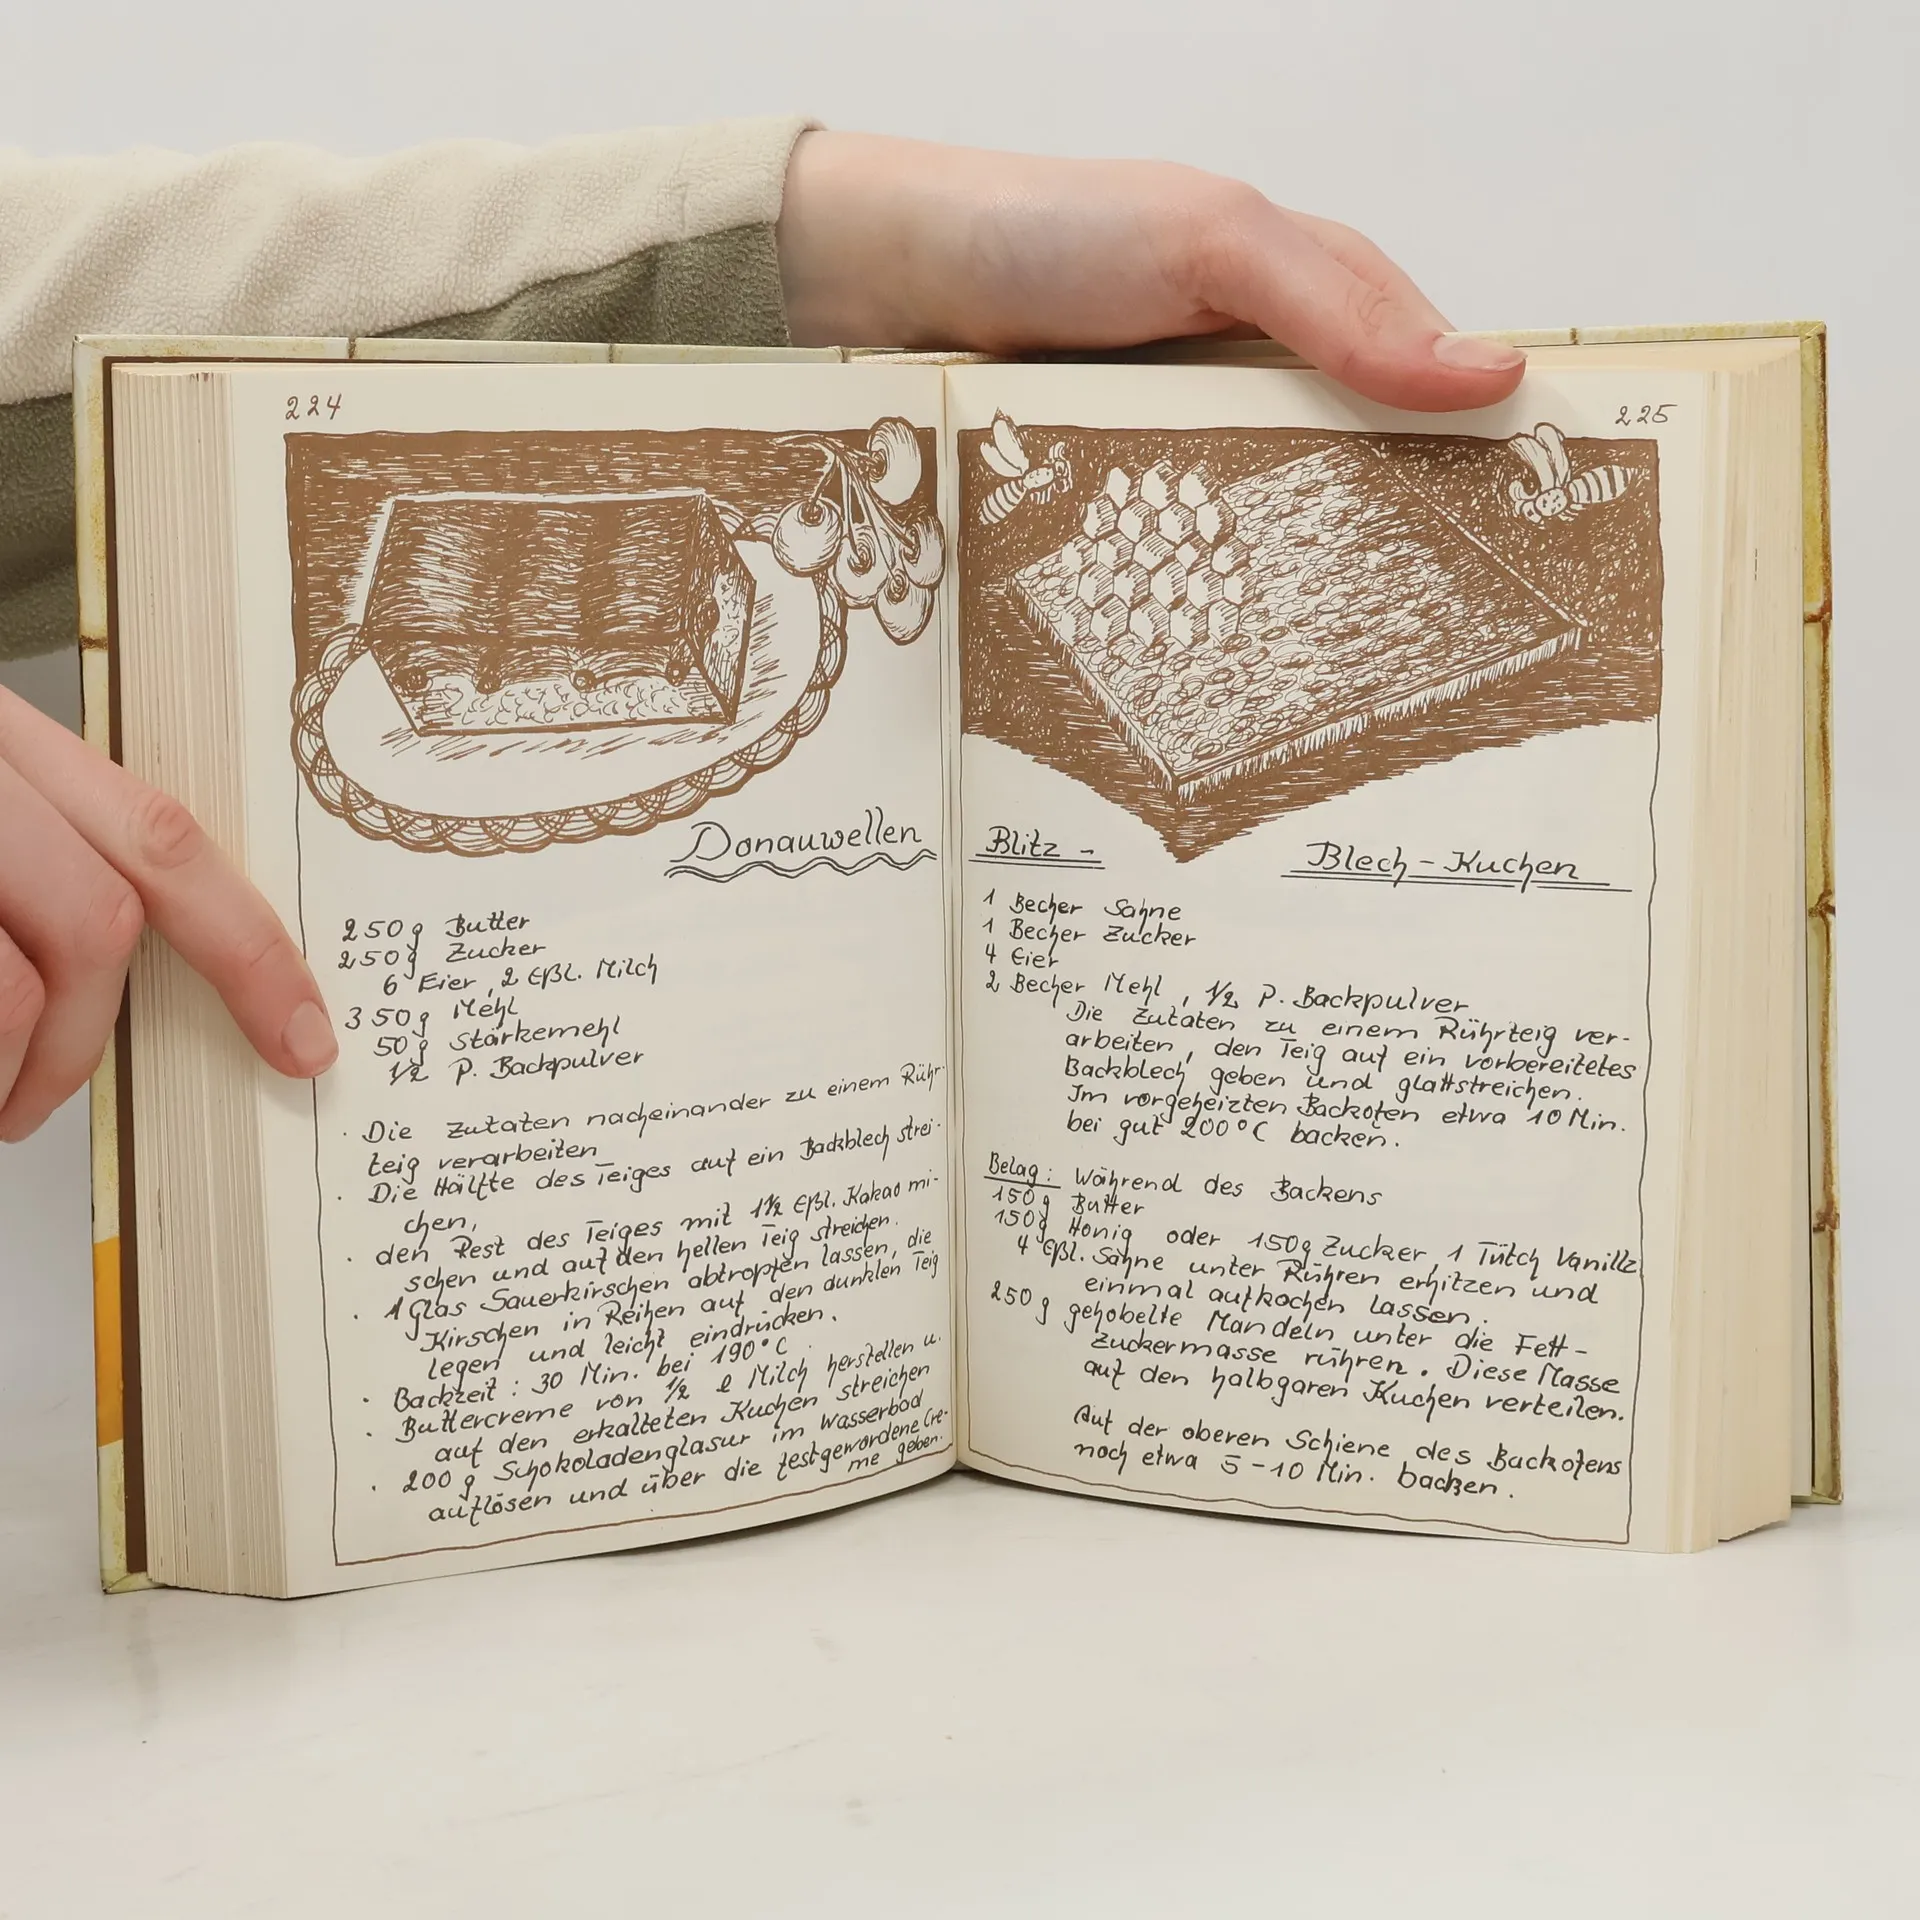 224
Donauwellen
250g Butter
250g Zucker
6 Eier, 2 Eßl. Milch
350g Mehl
50g Stärkemehl
1/2 P. Backpulver
· Die Zutaten nacheinander zu einem Rühr-
teig verarbeiten
· Die Hälfte des Teiges auf ein Backblech strei-
chen,
· den Rest des Teiges mit 1 1/2 Eßl. Kakao mi-
schen und auf den hellen Teig streichen.
· 1 Glas Sauerkirschen abtropfen lassen, die
Kirschen in Reihen auf den dunklen Teig
legen und leicht eindrücken.
· Backzeit: 30 Min. bei 190°C.
· Buttercreme von 1/2 l Milch herstellen u.
auf den erkalteten Kuchen streichen
· 200 g Schokoladenglasur im Wasserbad
auflösen und über die festgewordene Cre-
me geben.
225
Blitz - Blech-Kuchen
1 Becher Sahne
1 Becher Zucker
4 Eier
2 Becher Mehl, 1/2 P. Backpulver
Die Zutaten zu einem Rührteig ver-
arbeiten, den Teig auf ein vorbereitetes
Backblech geben und glattstreichen.
Im vorgeheizten Backofen etwa 10 Min.
bei gut 200°C backen.
Belag: Während des Backens
150g Butter
150g Honig oder 150g Zucker, 1 Tütch Vanillz.
4 Eßl. Sahne unter Rühren erhitzen und
einmal aufkochen lassen.
250 g gehobelte Mandeln unter die Fett-
zuckermasse rühren. Diese Masse
auf den halbgaren Kuchen verteilen.
Auf der oberen Schiene des Backofens
noch etwa 5-10 Min. backen.